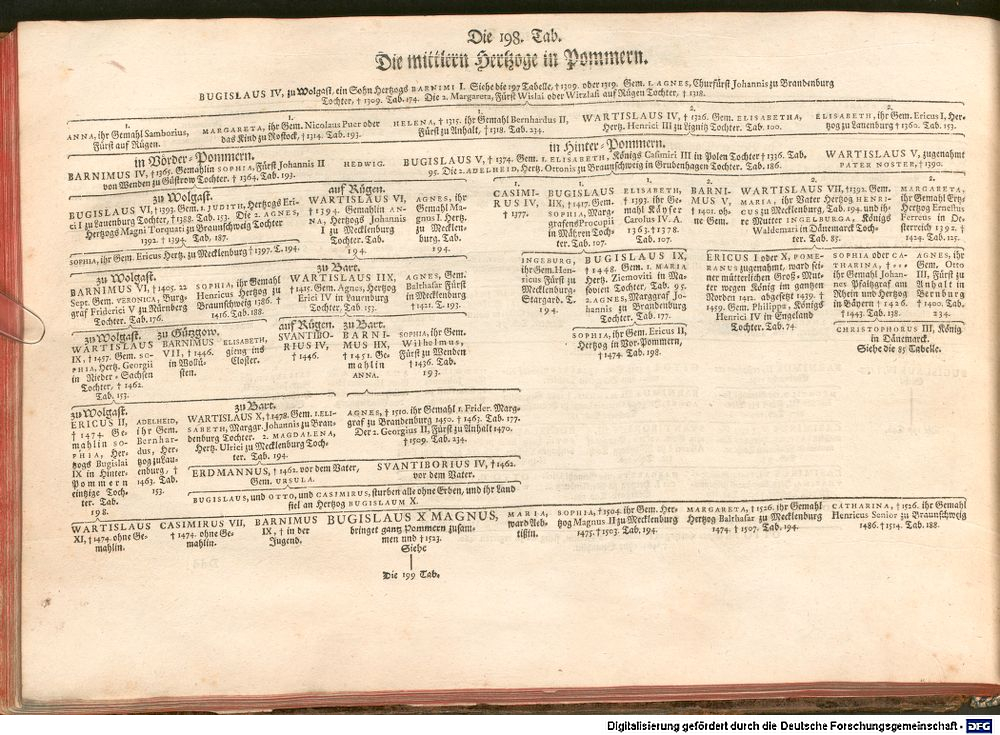 Die 198. Tab.
Die mittlern Hertzoge in Pommern.
BUGISLAUS IV, zu Wolgast, ein Sohn Hertzogs BARNIMI I. Siehe die 197 Tabelle, † 1309. oder 1319. Gem. 1. AGNES, Churfürst Johannis zu Brandenburg
Tochter, † 1309. Tab. 174. Die 2. Margareta, Fürst Wislai oder Witzlafi auf Rügen Tochter, † 1318.
1.
ANNA, ihr Gemahl Samborius,
Fürst auf Rügen.
1.
MARGARETA, ihr Gem. Nicolaus Puer oder
das Kind zu Rostock, † 1314. Tab. 193.
1.
HELENA, † 1315. ihr Gemahl Bernhardus II,
Fürst zu Anhalt, † 1318. Tab. 234.
2.
WARTISLAUS IV, † 1326. Gem. ELISABETHA,
Hertz. Henrici III zu Lignitz Tochter. Tab. 100.
2.
ELISABETH, ihr Gemahl Ericus I, Her-
tzog zu Lauenburg † 1360. Tab. 153.
in Vörder-Pommern.
BARNIMUS IV, † 1365. Gemahlin SOPHIA, Fürst Johannis II
von Wenden zu Güstrow Tochter. † 1364. Tab. 193.
HEDWIG.
in Hinter-Pommern.
BUGISLAUS V, † 1374. Gem. 1. ELISABETH, Königs Casimiri III in Polen Tochter † 1336. Tab.
95. Die 2. ADELHEID, Hertz. Ottonis zu Braunschweig in Grubenhagen Tochter. Tab. 186.
WARTISLAUS V, zugenahmt
PATER NOSTER, † 1390.
zu Wolgast.
BUGISLAUS VI, † 1393. Gem. 1. JUDITH, Hertzogs Eri-
ci I zu Lauenburg Tochter, † 1388. Tab. 153. Die 2. AGNES,
Hertzogs Magni Torquati zu Braunschweig Tochter
1392. † 1394. Tab. 187.
auf Rügen.
WARTISLAUS VI,
† 1394. Gemahlin AN-
NA, Hertzogs Johannis
I zu Mecklenburg
Tochter. Tab.
194.
AGNES, ihr
Gemahl Ma-
gnus I. Hertz.
zu Mecklen-
burg. Tab.
194.
1.
CASIMI-
RUS IV,
† 1377.
1.
BUGISLAUS
IIX, † 1417. Gem.
SOPHIA, Marg-
grafens Procopii
in Mähren Toch-
ter. Tab. 107.
1.
ELISABETH,
† 1393. ihr Ge-
mahl Käyser
Carolus IV. A.
1363. † 1378.
Tab. 107.
2.
BARNI-
MUS V,
† 1401. oh-
ne Gem.
2.
WARTISLAUS VII, † 1392. Gem.
MARIA, ihr Vater Hertzog HENRI-
CUS zu Mecklenburg, Tab. 194. und ih-
re Mutter INGELBURGA, Königs
Waldemari in Dänemarck Toch-
ter. Tab. 85.
2.
MARGARETA,
ihr Gemahl Ertz-
Hertzog Ernestus
Ferreus in Oe-
sterreich 1392. †
1424. Tab. 125.
SOPHIA, ihr Gem. Ericus Hertz. zu Mecklenburg † 1397. T. 194.
zu Wolgast.
BARNIMUS VI, † 1405. 22
Sept. Gem. VERONICA, Burg-
graf Friderici V zu Nürnberg
Tochter. Tab. 176.
SOPHIA, ihr Gemahl
Henricus Hertzog zu
Braunschweig 1386. †
1416. Tab. 188.
zu Bart.
WARTISLAUS IIX,
† 1415. Gem. Agnes, Hertzog
Erici IV in Lauenburg
Tochter. Tab. 153.
AGNES, Gem.
Balthasar Fürst
in Mecklenburg
† 1421. T. 193.
INGEBURG,
ihr Gem. Hen-
ricus Fürst zu
Mecklenburg-
Stargard. T.
194.
BUGISLAUS IX,
† 1448. Gem. 1. MARIA
Hertz. Ziemoviti in Ma-
sovien Tochter. Tab. 95.
2. AGNES, Marggraf Jo-
hannis zu Brandenburg
Tochter. Tab. 177.
ERICUS I oder X, POME-
RANUS zugenahmt, ward sei-
ner mütterlichen Groß-Mut-
ter wegen König im gantzen
Norden 1412. abgesetzt 1439. †
1459. Gem. Philippa, Königs
Henrici IV in Engeland
Tochter. Tab. 74
SOPHIA oder CA-
THARINA, † ...
ihr Gemahl Johan-
nes Pfaltzgraf am
Rhein und Hertzog
in Bäyern † 1426.
† 1443. Tab. 138.
AGNES, ihr
Gem. Otto
III, Fürst zu
Anhalt in
Bernburg
† 1400. Tab.
234.
SOPHIA, ihr Gem. Ericus II,
Hertzog in Vor-Pommern,
† 1474. Tab. 198.
CHRISTOPHORUS III, König
in Dänemarck.
Siehe die 85 Tabelle.
zu Wolgast.
WARTISLAUS
IX, † 1457. Gem. SO-
PHIA, Hertz. Georgii
in Nieder-Sachsen
Tochter, † 1462.
Tab. 153.
zu Gützgow.
BARNIMUS
VII, † 1446.
in Wollü-
sten.
ELISABETH,
gieng ins
Closter.
auf Rügen.
SVANTIBO-
RIUS IV,
† 1446.
zu Bart.
BARNI-
MUS IIX,
† 1451. Ge-
mahlin
ANNA.
SOPHIA, ihr Gem.
Wilhelmus,
Fürst zu Wenden
† 1436. Tab.
193.
zu Wolgast.
ERICUS II,
† 1474. Ge-
mahlin SO-
PHIA, Her-
tzogs Bugislai
IX in Hinter-
Pommern
eintzige Toch-
ter. Tab.
198.
ADELHEID,
ihr Gem.
Bernhar-
dus, Her-
tzog zu Lau-
enburg, †
1463. Tab.
153.
zu Bart.
WARTISLAUS X, † 1478. Gem. 1. ELI-
SABETH, Marggr. Johannis zu Bran-
denburg Tochter. 2. MAGDALENA,
Hertz. Ulrici zu Mecklenburg Toch-
ter. Tab. 194.
AGNES, † 1510. ihr Gemahl 1. Frider. Marg-
graf zu Brandenburg 1450. † 1463. Tab. 177.
Der 2. Georgius II, Fürst zu Anhalt 1470.
† 1509. Tab. 234.
ERDMANNUS, † 1462. vor dem Vater,
Gem. URSULA.
SVANTIBORIUS IV, † 1462.
vor dem Vater.
BUGISLAUS, und OTTO, und CASIMIRUS, sturben alle ohne Erben, und ihr Land
fiel an Hertzog BUGISLAUM X.
WARTISLAUS
XI, † 1474. ohne Ge-
mahlin.
CASIMIRUS VII,
† 1474. ohne Ge-
mahlin.
BARNIMUS
IX, † in der
Jugend.
BUGISLAUS X MAGNUS,
bringet gantz Pommern zusam-
men und † 1523.
Siehe
Die 199 Tab.
MARIA,
ward Aeb-
tißin.
SOPHIA, † 1504. ihr Gem. Her-
tzog Magnus II zu Mecklenburg
1475. † 1503. Tab. 194.
MARGARETA, † 1526. ihr Gemahl
Hertzog Balthasar zu Mecklenburg
1474. † 1507. Tab. 194.
CATHARINA, † 1526. ihr Gemahl
Henricus Senior zu Braunschweig
1486. † 1514. Tab. 188.
Digitalisierung gefördert durch die Deutsche Forschungsgemeinschaft - DFG